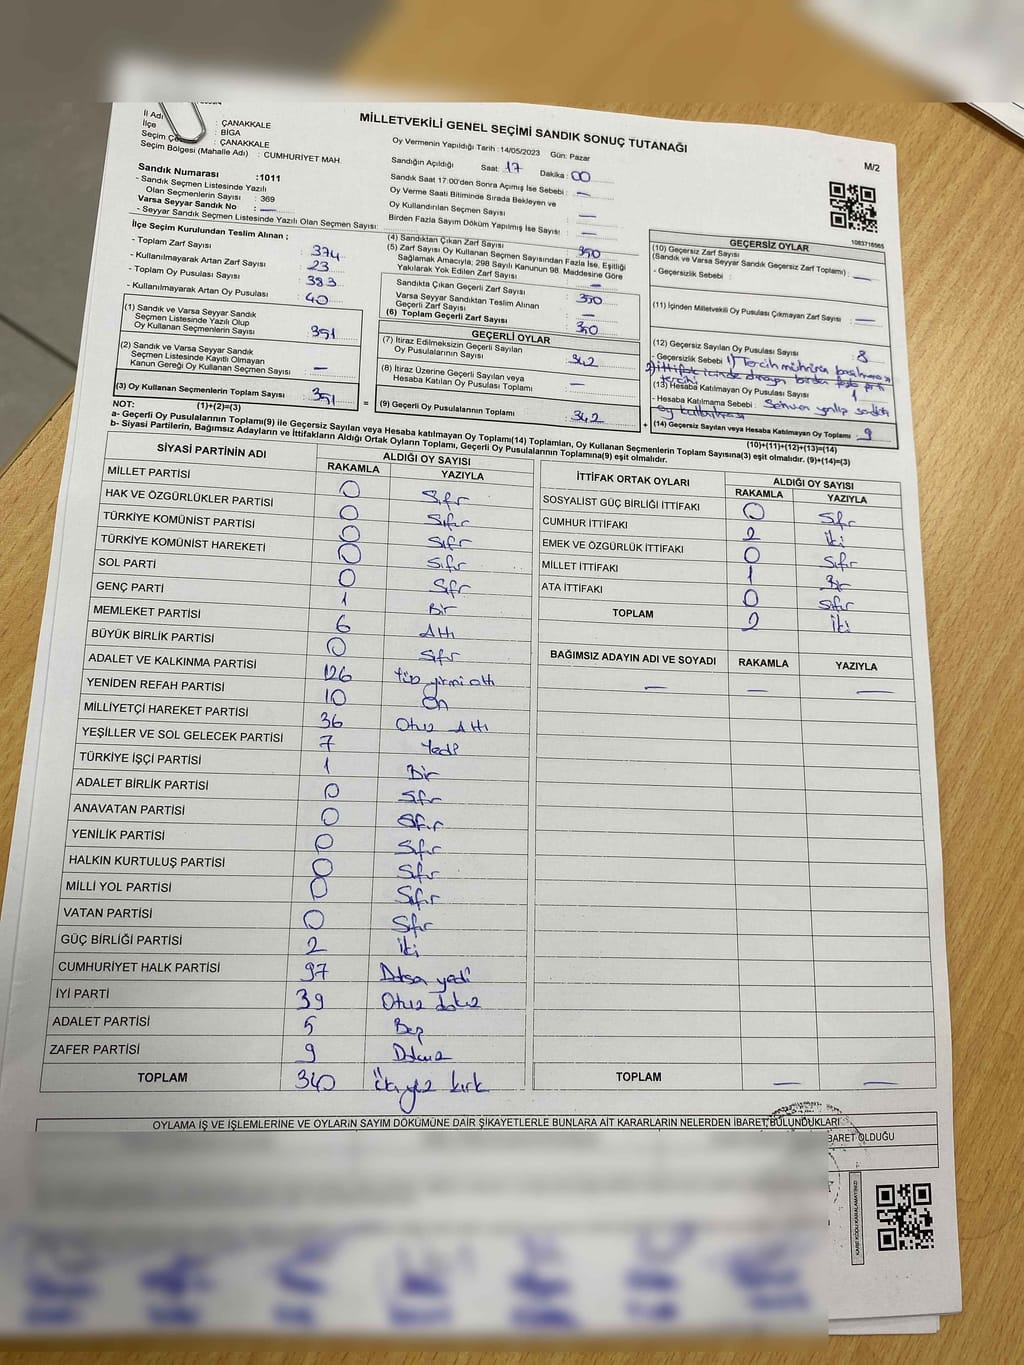 MİLLETVEKİLİ GENEL SEÇİMİ SANDIK SONUÇ TUTANAĞI
M/2
İl Adı : ÇANAKKALE
İlçe : BİGA
Seçim Çe : ÇANAKKALE
Seçim Bölgesi (Mahalle Adı) : CUMHURİYET MAH.
Oy Vermenin Yapıldığı Tarih : 14/05/2023 Gün: Pazar
Sandığın Açıldığı Saat: 17 Dakika: 00
Sandık Saat 17:00'den Sonra Açılmış İse Sebebi : —
Oy Verme Saati Bitiminde Sırada Bekleyen ve
Oy Kullandırılan Seçmen Sayısı : —
Birden Fazla Sayım Döküm Yapılmış İse Sayısı : —
Sandık Numarası :1011
- Sandık Seçmen Listesinde Yazılı
Olan Seçmenlerin Sayısı : 369
Varsa Seyyar Sandık No : —
- Seyyar Sandık Seçmen Listesinde Yazılı Olan Seçmen Sayısı:
1083716985
İlçe Seçim Kurulundan Teslim Alınan ;
- Toplam Zarf Sayısı : 374
- Kullanılmayarak Artan Zarf Sayısı : 23
- Toplam Oy Pusulası Sayısı : 383
- Kullanılmayarak Artan Oy Pusulası : 40
(1) Sandık ve Varsa Seyyar Sandık
Seçmen Listesinde Yazılı Olup
Oy Kullanan Seçmenlerin Sayısı : 351
(2) Sandık ve Varsa Seyyar Sandık
Seçmen Listesinde Kayıtlı Olmayan
Kanun Gereği Oy Kullanan Seçmen Sayısı : —
(3) Oy Kullanan Seçmenlerin Toplam Sayısı : 351
(1)+(2)=(3)
(4) Sandıktan Çıkan Zarf Sayısı : 350
(5) Zarf Sayısı Oy Kullanan Seçmen Sayısından Fazla İse, Eşitliği
Sağlamak Amacıyla, 298 Sayılı Kanunun 98. Maddesine Göre
Yakılarak Yok Edilen Zarf Sayısı : —
Sandıkta Çıkan Geçerli Zarf Sayısı : 350
Varsa Seyyar Sandıktan Teslim Alınan
Geçerli Zarf Sayısı : —
(6) Toplam Geçerli Zarf Sayısı : 350
GEÇERLİ OYLAR
(7) İtiraz Edilmeksizin Geçerli Sayılan
Oy Pusulalarının Sayısı : 342
(8) İtiraz Üzerine Geçerli Sayılan veya
Hesaba Katılan Oy Pusulası Toplamı : —
(9) Geçerli Oy Pusulalarının Toplamı : 342
GEÇERSİZ OYLAR
(10) Geçersiz Zarf Sayısı
(Sandık ve Varsa Seyyar Sandık Geçersiz Zarf Toplamı) : —
- Geçersizlik Sebebi :
(11) İçinden Milletvekili Oy Pusulası Çıkmayan Zarf Sayısı : —
(12) Geçersiz Sayılan Oy Pusulası Sayısı : 8
- Geçersizlik Sebebi : 1) Tercih mührünün basılmaması
2) İttifak içinde olmayan birden fazla parti
tercihi
(13) Hesaba Katılmayan Oy Pusulası Sayısı : 1
- Hesaba Katılmama Sebebi : Sehven yanlış sandıkta
oy kullanılması
(14) Geçersiz Sayılan veya Hesaba Katılmayan Oy Toplamı : 9
(10)+(11)+(12)+(13)=(14)
NOT:
a- Geçerli Oy Pusulalarının Toplamı(9) ile Geçersiz Sayılan veya Hesaba katılmayan Oy Toplamı(14) Toplamları, Oy Kullanan Seçmenlerin Toplam Sayısına(3) eşit olmalıdır. (9)+(14)=(3)
b- Siyasi Partilerin, Bağımsız Adayların ve İttifakların Aldığı Ortak Oyların Toplamı, Geçerli Oy Pusulalarının Toplamına(9) eşit olmalıdır.
SİYASİ PARTİNİN ADI ALDIĞI OY SAYISI
RAKAMLA YAZIYLA
MİLLET PARTİSİ 0 Sıfır
HAK VE ÖZGÜRLÜKLER PARTİSİ 0 Sıfır
TÜRKİYE KOMÜNİST PARTİSİ 0 Sıfır
TÜRKİYE KOMÜNİST HAREKETİ 0 Sıfır
SOL PARTİ 0 Sıfır
GENÇ PARTİ 1 Bir
MEMLEKET PARTİSİ 6 Altı
BÜYÜK BİRLİK PARTİSİ 0 Sıfır
ADALET VE KALKINMA PARTİSİ 126 Yüz yirmi altı
YENİDEN REFAH PARTİSİ 10 On
MİLLİYETÇİ HAREKET PARTİSİ 36 Otuz Altı
YEŞİLLER VE SOL GELECEK PARTİSİ 7 Yedi
TÜRKİYE İŞÇİ PARTİSİ 1 Bir
ADALET BİRLİK PARTİSİ 0 Sıfır
ANAVATAN PARTİSİ 0 Sıfır
YENİLİK PARTİSİ 0 Sıfır
HALKIN KURTULUŞ PARTİSİ 0 Sıfır
MİLLİ YOL PARTİSİ 0 Sıfır
VATAN PARTİSİ 0 Sıfır
GÜÇ BİRLİĞİ PARTİSİ 2 İki
CUMHURİYET HALK PARTİSİ 97 Doksan yedi
İYİ PARTİ 39 Otuz dokuz
ADALET PARTİSİ 5 Beş
ZAFER PARTİSİ 9 Dokuz
TOPLAM 340 Üç yüz kırk
İTTİFAK ORTAK OYLARI ALDIĞI OY SAYISI
RAKAMLA YAZIYLA
SOSYALİST GÜÇ BİRLİĞİ İTTİFAKI 0 Sıfır
CUMHUR İTTİFAKI 2 İki
EMEK VE ÖZGÜRLÜK İTTİFAKI 0 Sıfır
MİLLET İTTİFAKI 1 Bir
ATA İTTİFAKI 0 Sıfır
TOPLAM 2 İki
BAĞIMSIZ ADAYIN ADI VE SOYADI RAKAMLA YAZIYLA
— — —
TOPLAM — —
OYLAMA İŞ VE İŞLEMLERİNE VE OYLARIN SAYIM DÖKÜMÜNE DAİR ŞİKAYETLERLE BUNLARA AİT KARARLARIN NELERDEN İBARET BULUNDUKLARI
BARET OLDUĞU
KARE KODU KARALAMAYINIZ!